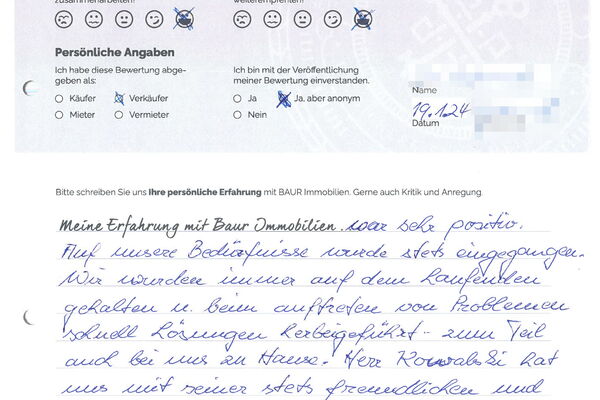 zusammenarbeiten?
weiterempfehlen?
Persönliche Angaben
Ich habe diese Bewertung abge-
geben als:
Käufer Verkäufer
Mieter Vermieter
Ich bin mit der Veröffentlichung
meiner Bewertung einverstanden.
Ja Ja, aber anonym
Nein
Name
19.1.24
Datum
Bitte schreiben Sie uns Ihre persönliche Erfahrung mit BAUR Immobilien. Gerne auch Kritik und Anregung.
Meine Erfahrung mit Baur Immobilien war sehr positiv.
Auf unsere Bedürfnisse wurde stets eingegangen.
Wir wurden immer auf dem Laufenden
gehalten u. beim auftreten von Problemen
schnell Lösungen herbeigeführt - zum Teil
auch bei uns zu Hause. Herr Kowalski hat
uns mit seiner stets freundlichen und